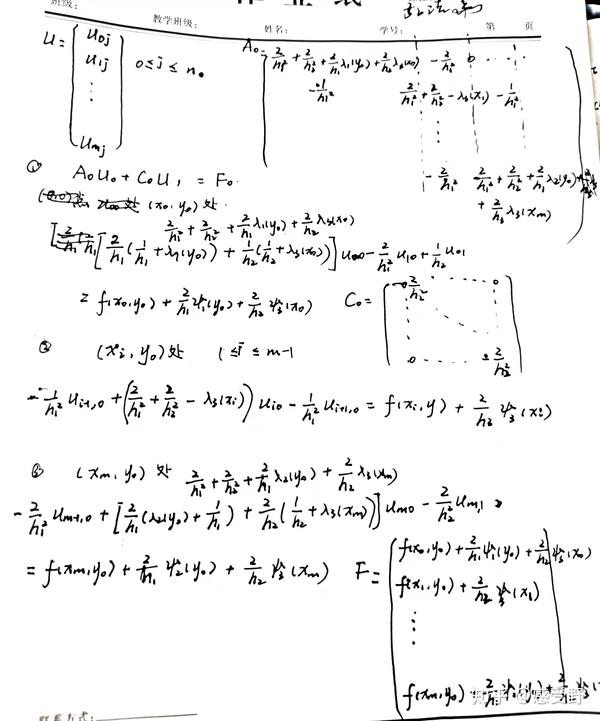 班级:
教学班级: 姓名: 学号: 第 页
U = { u_{0j} u_{1j} ⋮ u_{mj} } 0≤j≤n。
A_0 = 2/h_1^2 + 2/h_2^2 + 2/h_1 λ_1(y_0) + 2/h_2 λ_3(x_0) -2/h_1^2 0 ⋯
-1/h_1^2 2/h_1^2 + 2/h_2^2 - λ_3(x_1) -1/h_1^2
-2/h_1^2 2/h_1^2 + 2/h_2^2 + 2/h_1 λ_2(y_0)
+ 2/h_2 λ_3(x_m)
① A_0U_0 + C_0U_1 = F_0
(x_0, y_0) 处
2/h_1^2 + 2/h_2^2 + 2/h_1 λ_1(y_0) + 2/h_2 λ_3(x_0)
[2/h_1(1/h_1 + λ_1(y_0)) + 1/h_2(1/h_2 + λ_3(x_0))] u_{00} - 2/h_1^2 u_{10} + 1/h_2 u_{01}
= f(x_0, y_0) + 2/h_1 ψ_1(y_0) + 2/h_2 ψ_3(x_0) C_0 = [ -2/h_2^2 ⋯ 0 0 ⋯ 2/h_2^2 ]
② (x_i, y_0) 处 1≤i≤m-1
-1/h_1^2 u_{i+1,0} + (2/h_1^2 + 2/h_2^2 - λ_3(x_i)) u_{i0} - 1/h_1^2 u_{i+1,0} = f(x_i, y) + 2/h_2 ψ_3(x_i)
③ (x_m, y_0) 处 2/h_1^2 + 2/h_2^2 + 2/h_1 λ_2(y_0) + 2/h_2 λ_3(x_m)
-2/h_1^2 u_{m-1,0} + [2/h_1(λ_2(y_0) + 1/h_1) + 2/h_2(1/h_2 + λ_3(x_m))] u_{m0} - 2/h_2^2 u_{m,1}
= f(x_m, y_0) + 2/h_1 ψ_2(y_0) + 2/h_2 ψ_3(x_m) F = { f(x_0, y_0) + 2/h_1 ψ_1(y_0) + 2/h_2 ψ_3(x_0)
f(x_1, y_0) + 2/h_2 ψ_3(x_1)
⋮
f(x_m, y_0)
知乎 @感受野
联系方式: